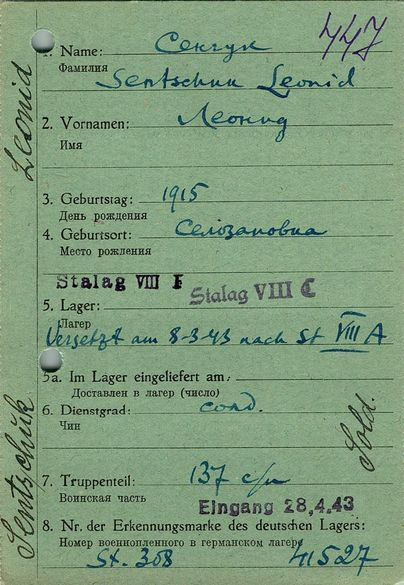 447
1. Name: Сенчук
Фамилия
Sentschuk Leonid
2. Vornamen: Леонид
Имя
3. Geburtstag: 1915
День рождения
4. Geburtsort:
Место рождения
Stalag VIII F Stalag VIII C
5. Lager:
Лагер
Versetzt am 8-3-43 nach St VIII A
5a. Im Lager eingeliefert am:
Доставлен в лагер (число)
6. Dienstgrad: солд.
Чин
7. Truppenteil: 137 с/п
Воинская часть
Eingang 28.4.43
8. Nr. der Erkennungsmarke des deutschen Lagers:
Номер военнопленного в германском лагере
St. 308 41527
Sentschuk Leonid
Sold.